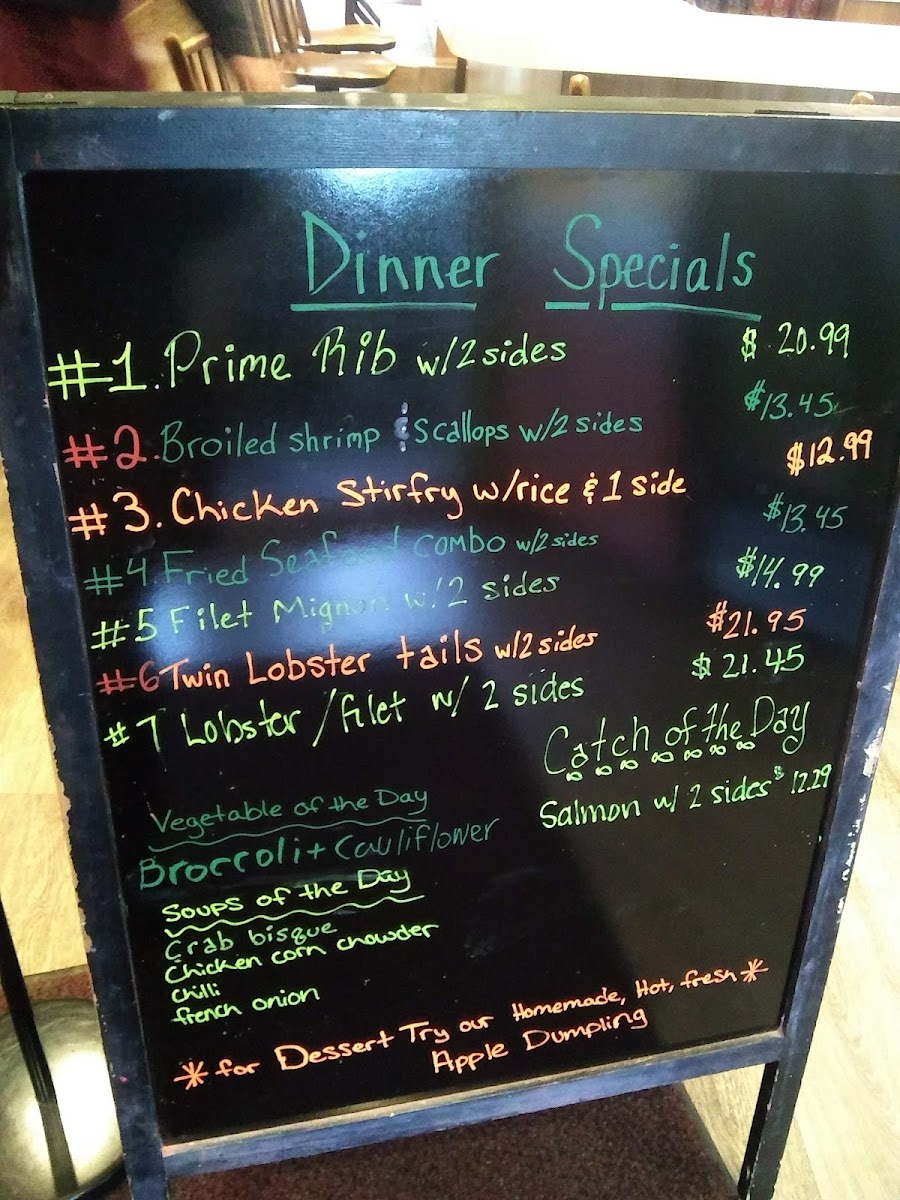 Dinner Specials
#1. Prime Rib w/2 sides $ 20.99
#2. Broiled shrimp & scallops w/2 sides $13.45
#3. Chicken Stirfry w/rice & 1 side $12.99
#4 Fried Seafood combo w/2 sides $13.45
#5 Filet Mignon w/ 2 sides $14.99
#6 Twin Lobster tails w/2 sides $21.95
#7 Lobster / filet w/ 2 sides $ 21.45
Catch of the Day
Salmon w/ 2 sides $ 12.29
Vegetable of the Day
Broccoli + Cauliflower
Soups of the Day
Crab bisque
Chicken corn chowder
Chilli
french onion
* for Dessert Try our Homemade, Hot, fresh *
Apple Dumpling